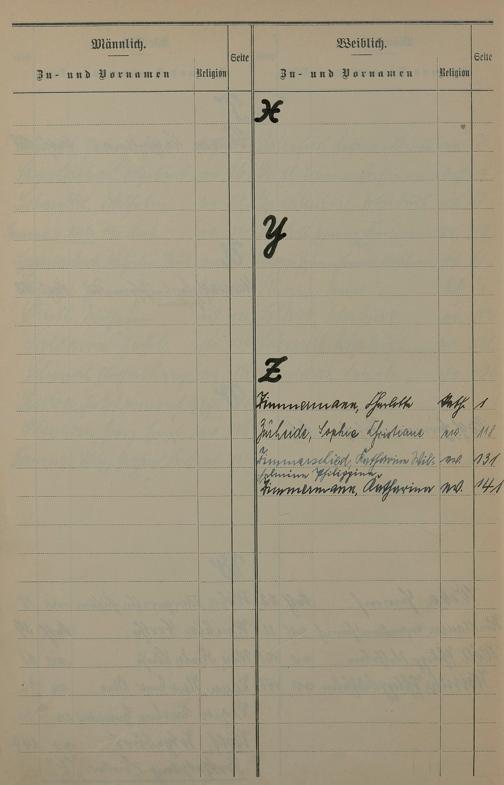 Männlich.
Zu- und Vornamen Religion Seite
Weiblich.
Zu- und Vornamen Religion Seite
X
Y
Z
Zimmermann, Charlotte Kath. 1
Zurheide, Sophie Christiane ev. 118
Zimmerschied, Katharina Wil- ev. 131
helmine Philippine
Zimmermann, Katharina ev. 141